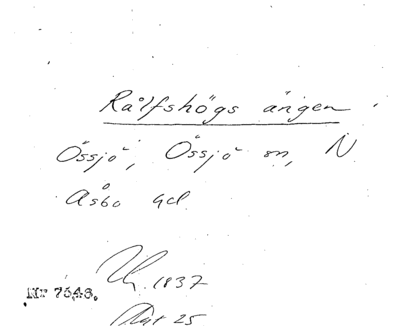 Rålfshögs ängen
Össjö, Össjö sn, N
Åsbo hd.
1837
Nr 7548.
Akt 25